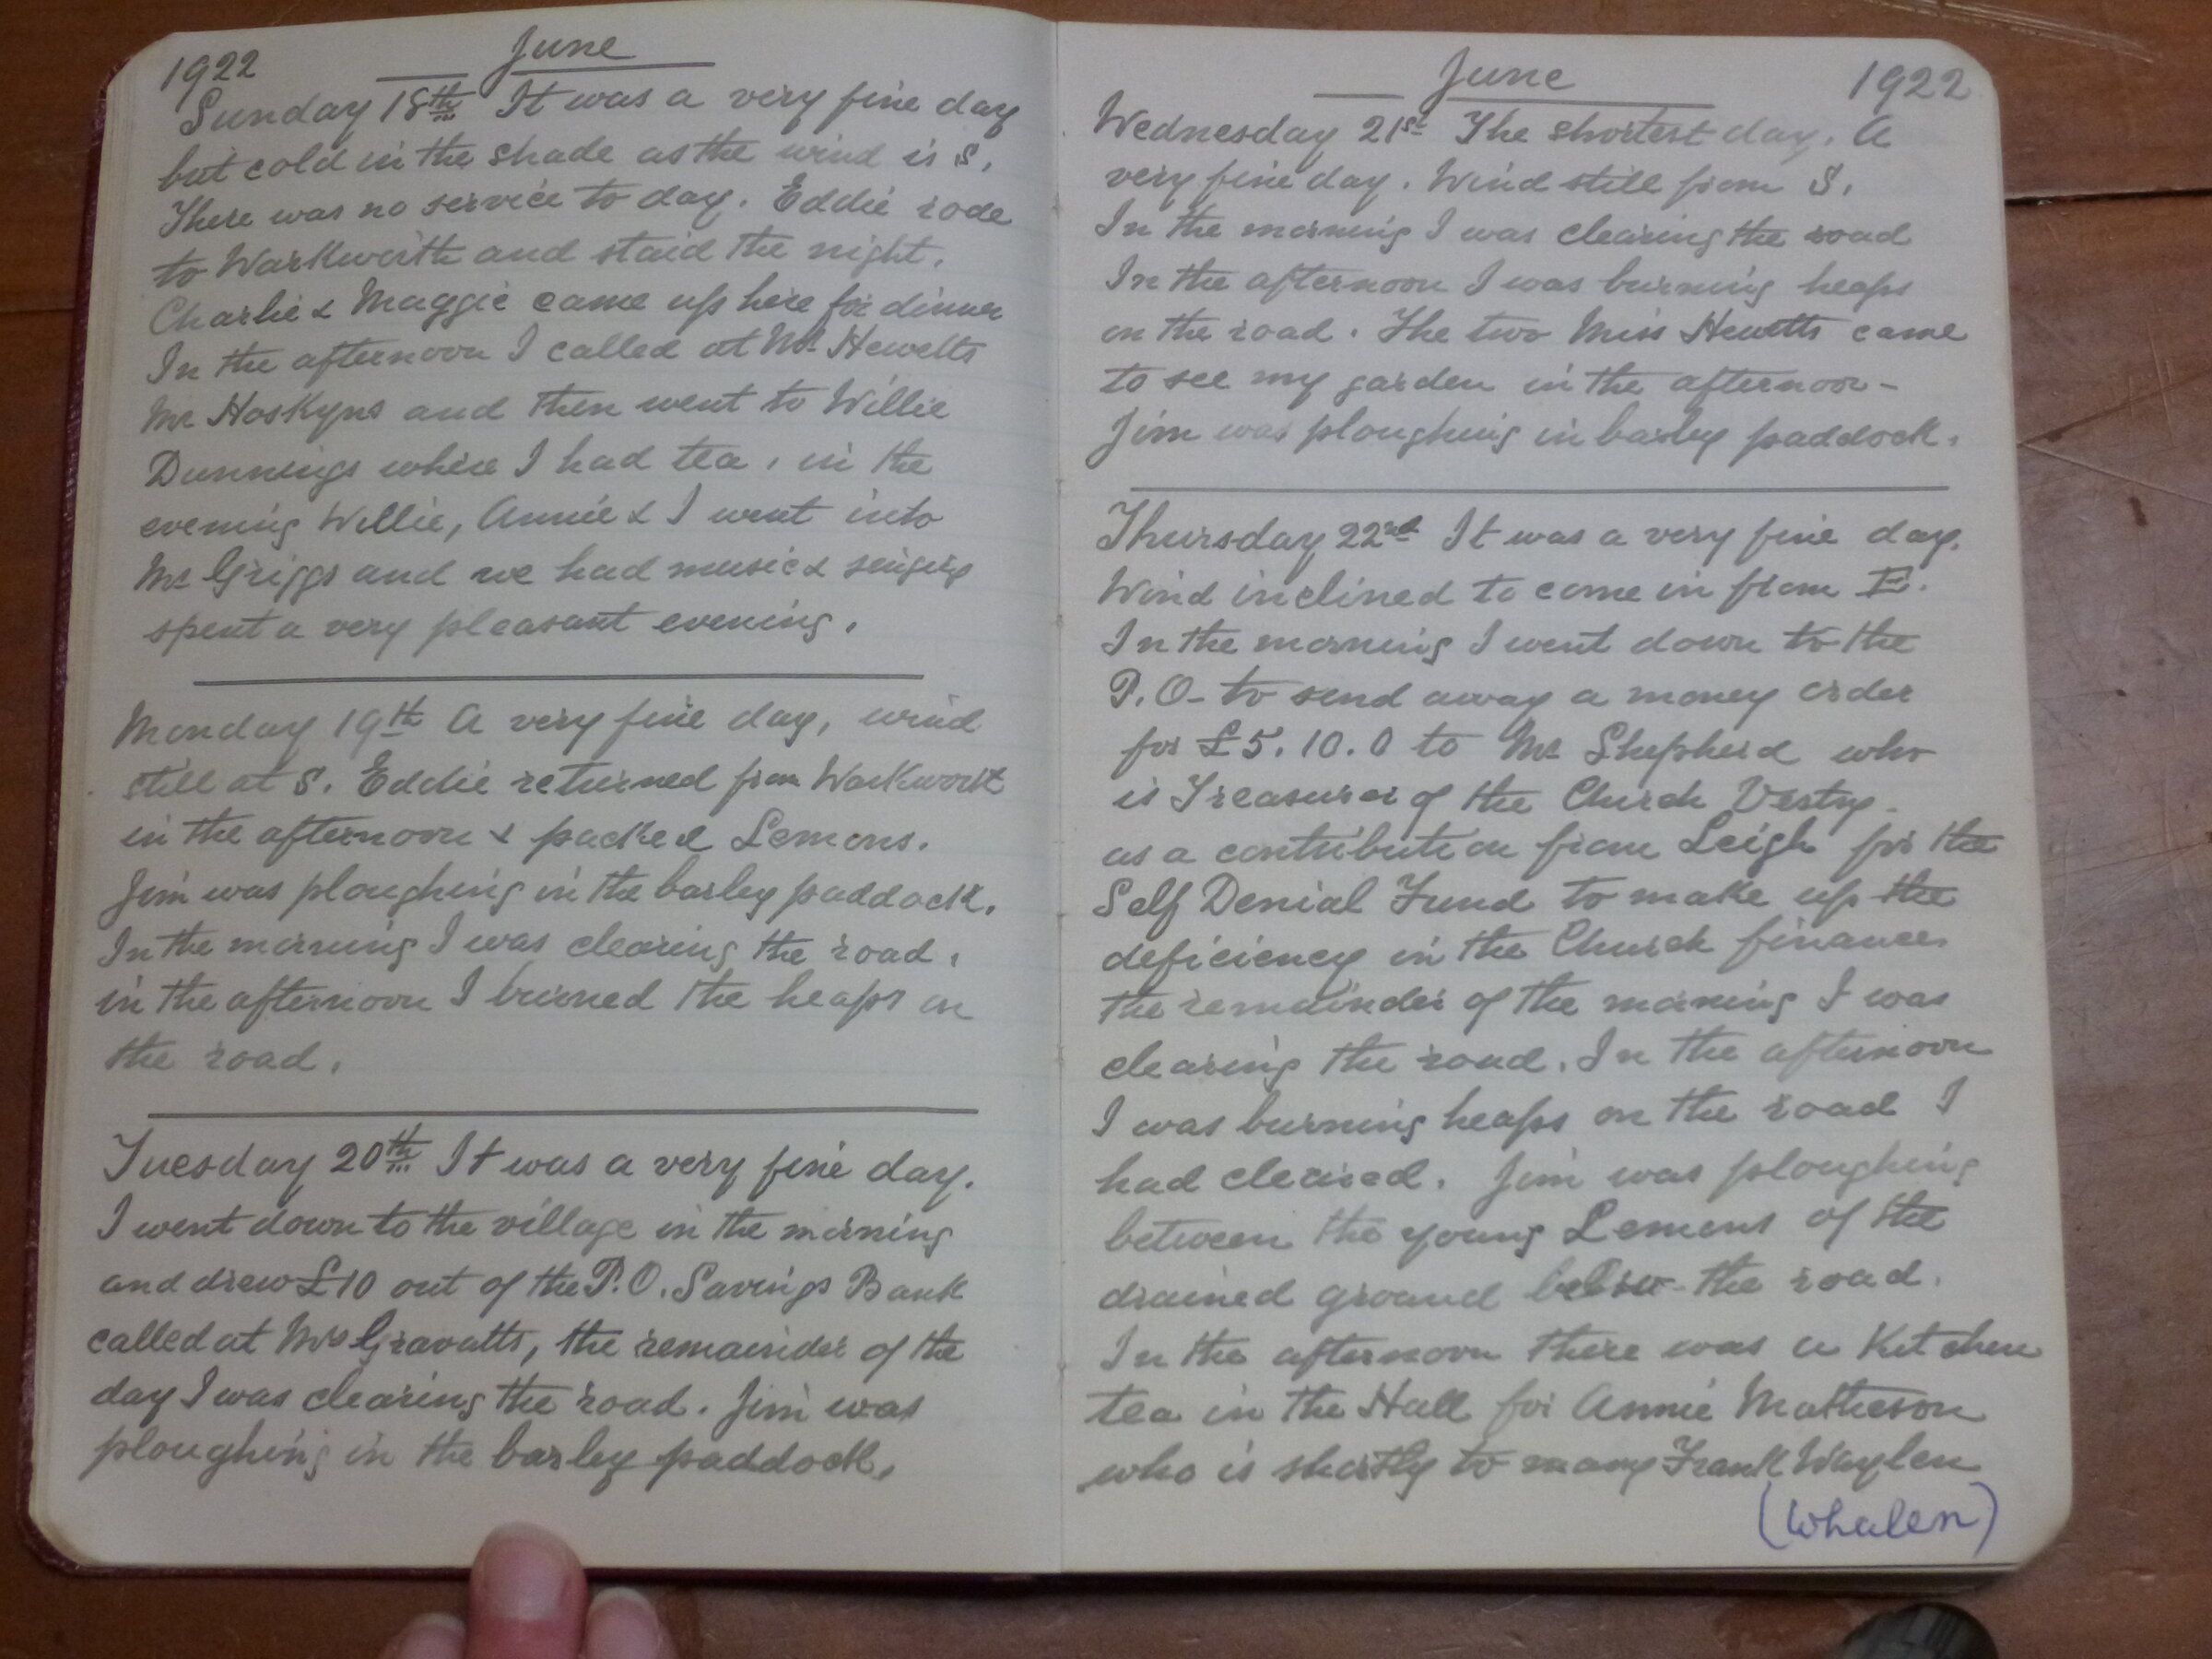 1922 June
Sunday 18th It was a very fine day
but cold in the shade as the wind is S.
There was no service to day. Eddie rode
to Warkworth and staid the night.
Charlie & Maggie came up here for dinner
In the afternoon I called at Mr Hewetts
Mr Hoskyns and then went to Willie
Dunnings where I had tea, in the
evening Willie, Annie & I went into
Mr Griggs and we had music & singing
spent a very pleasant evening.
Monday 19th A very fine day, wind
still at S. Eddie returned from Warkworth
in the afternoon & packed Lemons.
Jim was ploughing in the barley paddock.
In the morning I was clearing the road,
in the afternoon I burned the heaps on
the road.
Tuesday 20th It was a very fine day.
I went down to the village in the morning
and drew £10 out of the P.O. Savings Bank
called at Mrs Gravatts, the remainder of the
day I was clearing the road. Jim was
ploughing in the barley paddock,
June 1922
Wednesday 21st The shortest day. A
very fine day. Wind still from S.
In the morning I was clearing the road
In the afternoon I was burning heaps
on the road. The two Miss Hewetts came
to see my garden in the afternoon -
Jim was ploughing in barley paddock.
Thursday 22nd It was a very fine day.
Wind inclined to come in from E.
In the morning I went down to the
P.O- to send away a money order
for £5.10.0 to Mr Shepherd who
is Treasurer of the Church Vestry-
as a contribution from Leigh for the
Self Denial Fund to make up the
deficiency in the Church finances
the remainder of the morning I was
clearing the road. In the afternoon
I was burning heaps on the road I
had cleared. Jim was ploughing
between the young Lemons of the
drained ground below the road.
In the afternoon there was a Kitchen
tea in the Hall for Annie Matheson
who is shortly to marry Frank Waylen
(Whalen)